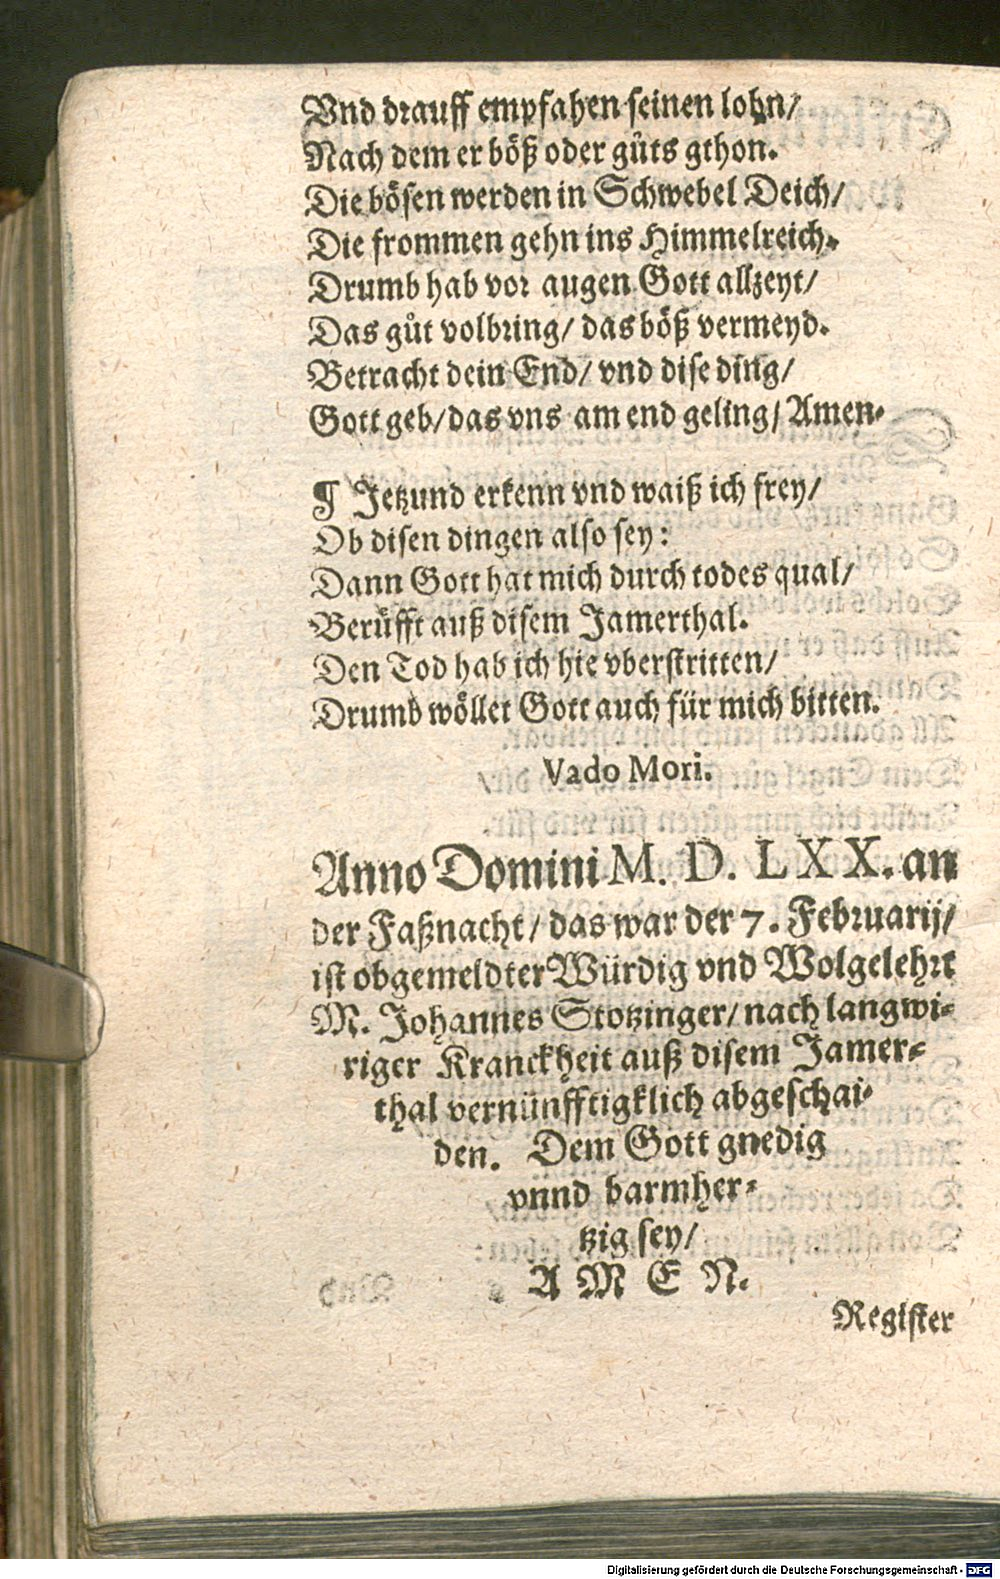 Vnd drauff empfahen seinen lohn/
Nach dem er böß oder gůts gthon.
Die bösen werden in Schwebel Deich/
Die frommen gehn ins Himmelreich.
Drumb hab vor augen Gott allzeyt/
Das gůt volbring/ das böß vermeyd.
Betracht dein End/ vnd dise ding/
Gott geb/ das vns am end geling/ Amen.
¶ Jetzund erkenn vnd waiß ich frey/
Ob disen dingen also sey:
Dann Gott hat mich durch todes qual/
Berůfft auß disem Jamerthal.
Den Tod hab ich hie vberstritten/
Drumb wöllet Gott auch für mich bitten.
Vado Mori.
Anno Domini M. D. LXX. an
der Faßnacht/ das war der 7. Februarij/
ist obgemeldter Würdig vnd Wolgelehrt
M. Johannes Stotzinger/ nach langwi-
riger Kranckheit auß disem Jamer-
thal vernünfftigklich abgeschai-
den. Dem Gott gnedig
vnnd barmher-
tzig sey/
AMEN.
Register
Digitalisierung gefördert durch die Deutsche Forschungsgemeinschaft - DFG